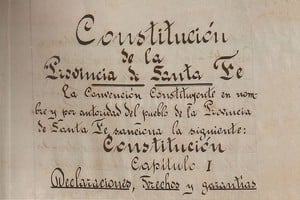 Constitución
de la
Provincia de Santa Fe
La Convención Constituyente en nom-
bre y por autoridad del pueblo de la Provincia
de Santa Fe, sanciona la siguiente:
Constitución
Capítulo I
Declaraciones, Drechos y garantías